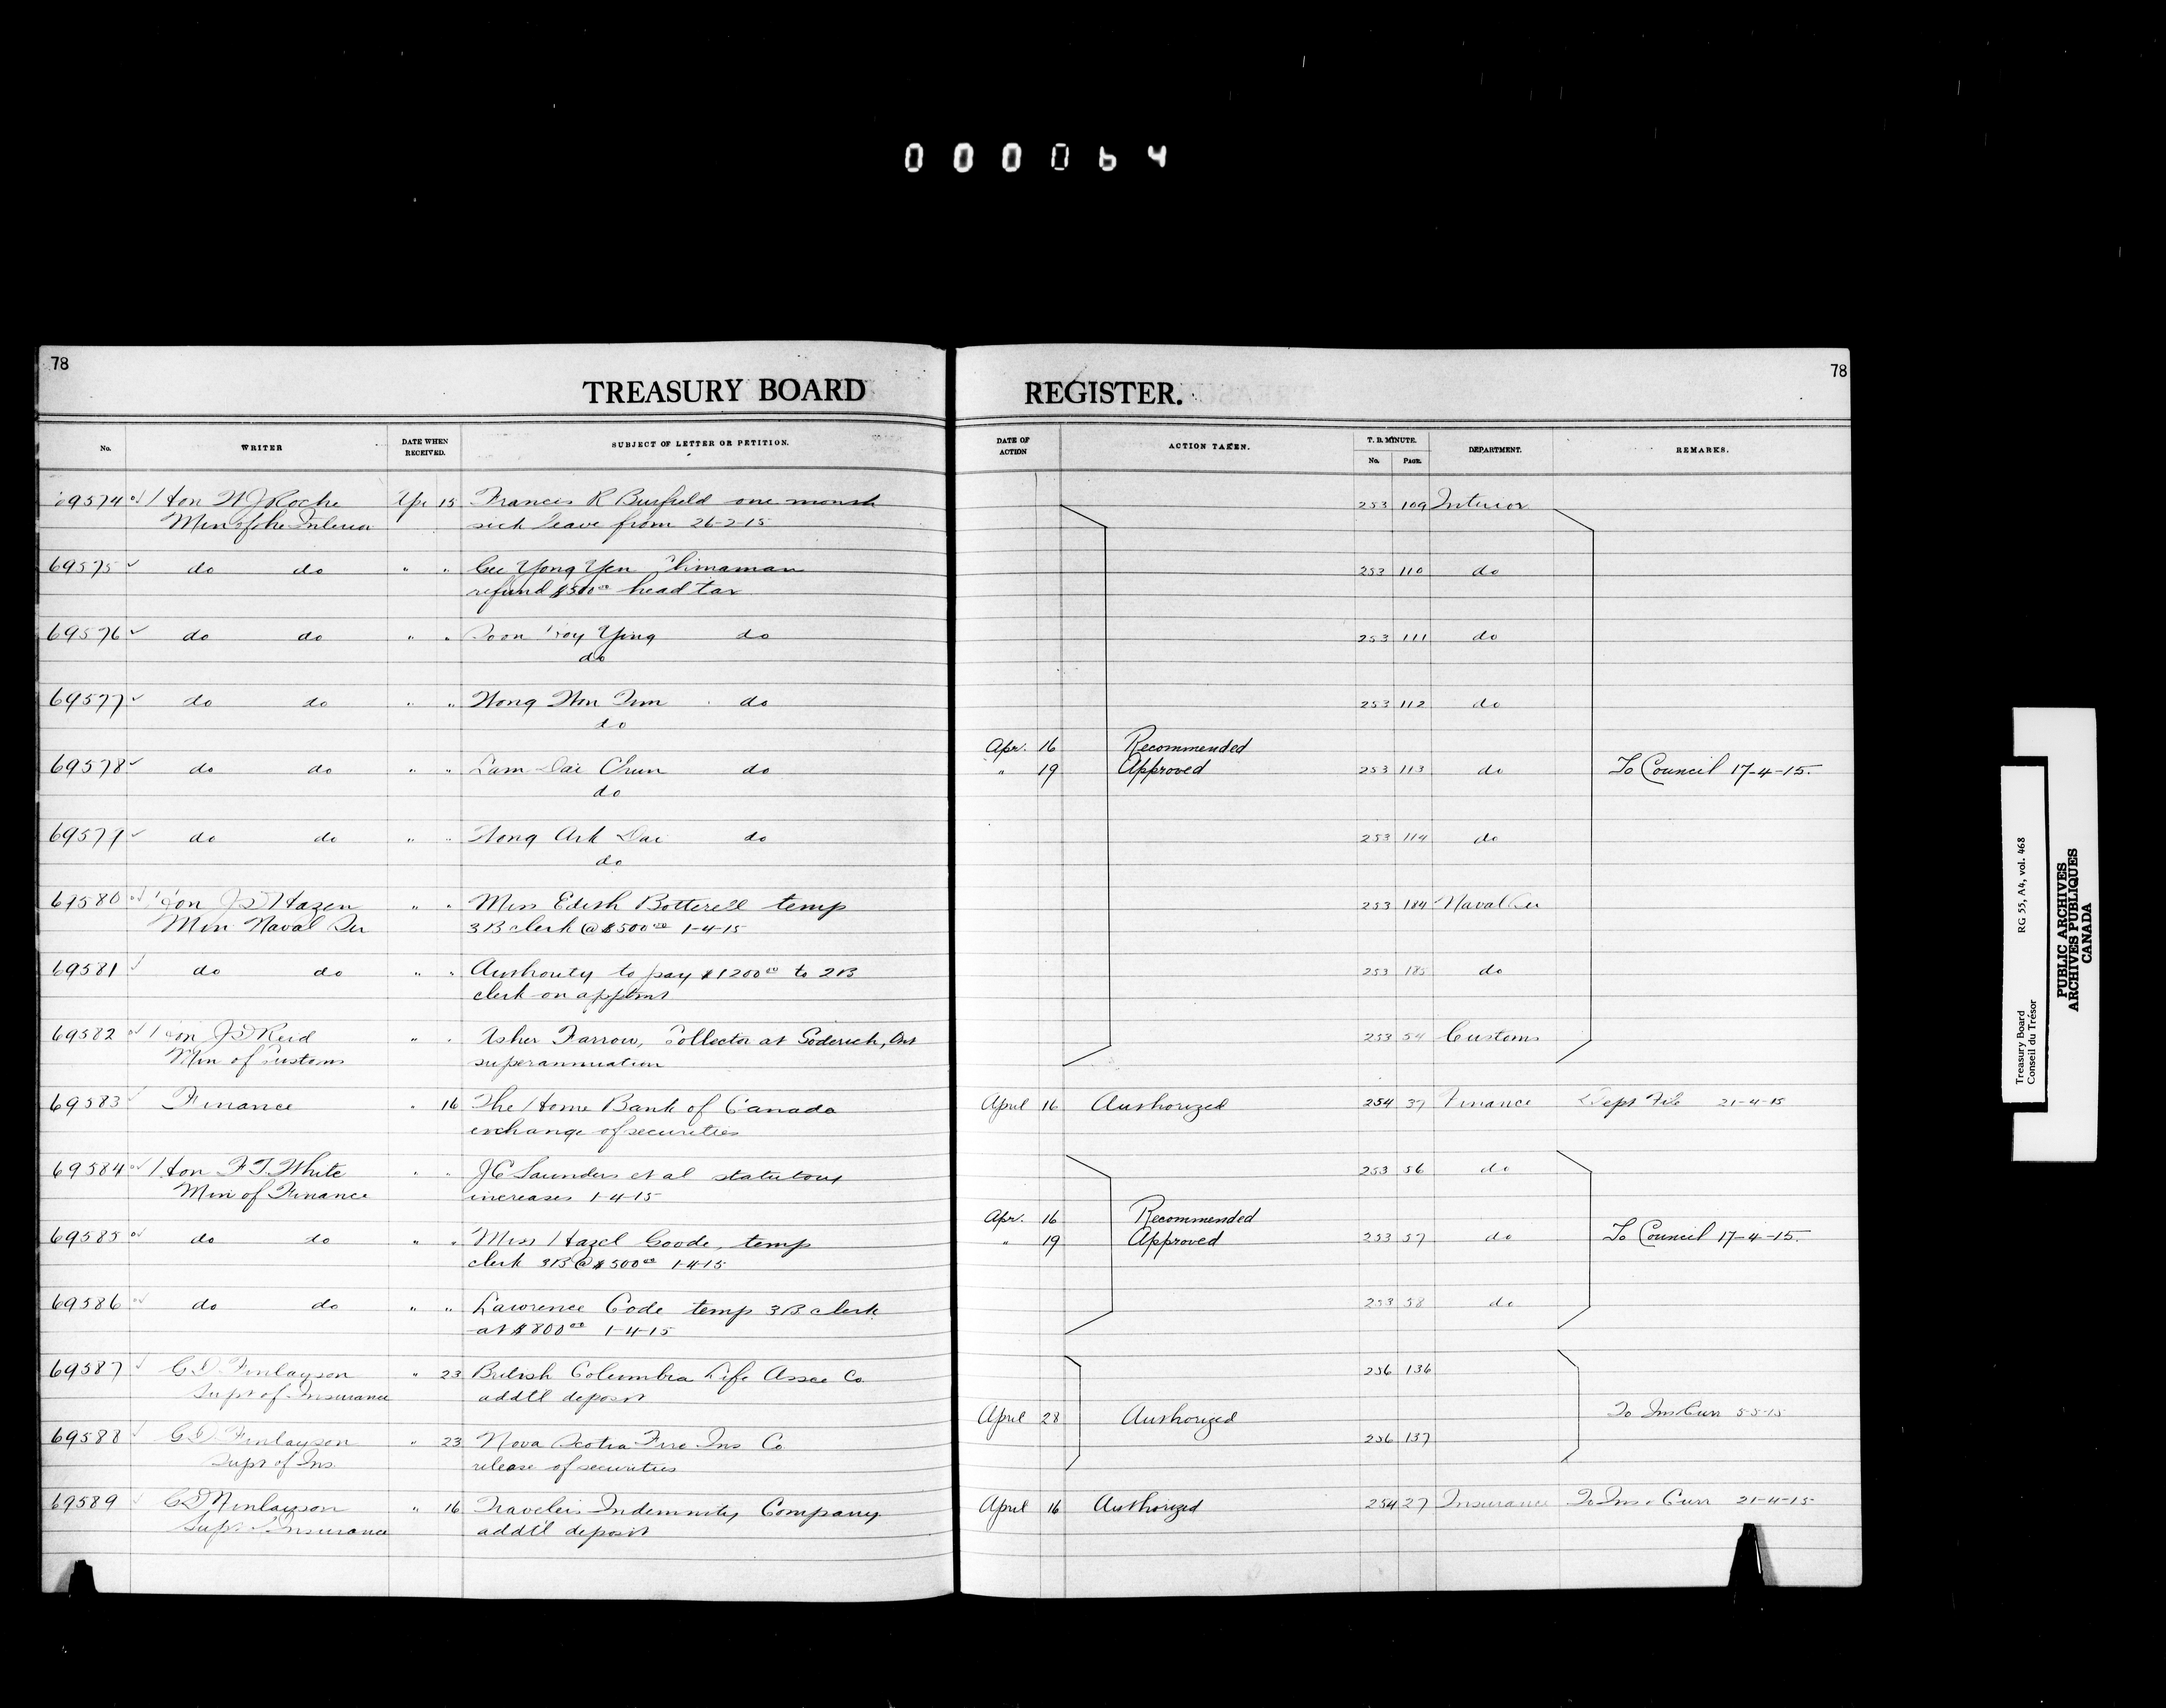 000064
78
TREASURY BOARD REGISTER.
78
No. WRITER DATE WHEN RECEIVED. SUBJECT OF LETTER OR PETITION. DATE OF ACTION ACTION TAKEN. T. B. MINUTE. No. PAGE. DEPARTMENT. REMARKS.
69574 Hon W J Roche Apr 15 Francis R Burfield one month 253 109 Interior
Min of the Interior sick leave from 26-2-15
69575 do do " " Gee Yong Yen Chinaman 253 110 do
refund $500 00 head tax
69576 do do " " Ying do 253 111 do
do
69577 do do " " Wong Won do 253 112 do
do
Apr. 16 Recommended
69578 do do " " Lam Dai Chun do " 19 Approved 253 113 do To Council 17-4-15.
do
69579 do do " " Wong Ark Dai do 253 114 do
do
69580 Hon J D Hazen " " Miss Edith Botterell temp 253 184 Naval Ser
Min Naval Ser 3B clerk @ $500 00 1-4-15
69581 do do " " Authority to pay $1200 00 to 2B 253 185 do
clerk on apptmt
69582 Hon J D Reid " " Asher Farrow, Collector at Goderich, Ont 253 54 Customs
Min of Customs superannuation
69583 Finance " 16 The Home Bank of Canada April 16 Authorized 254 37 Finance Dept File 21-4-15
exchange of securities
69584 Hon W T White " " J C Saunders et al statutory 253 56 do
Min of Finance increases 1-4-15
Apr. 16 Recommended
69585 do do " " Miss Hazel Goode, temp " 19 Approved 253 57 do To Council 17-4-15.
clerk 3B @ $500 00 1-4-15
69586 do do " " Lawrence Code temp 3B clerk 253 58 do
at $800 00 1-4-15
69587 G D Finlayson " 23 British Columbia Life Assce Co. 256 136
Supt of Insurance addtl deposit
April 28 Authorized To Ins Curr 5-5-15
69588 G D Finlayson " 23 Nova Scotia Fire Ins Co 256 137
Supt of Ins. release of securities
69589 G D Finlayson " 16 Travelers Indemnity Company April 16 Authorized 254 27 Insurance To Ins Curr 21-4-15
Supt of Insurance addtl deposit
Treasury Board RG 55, A4, vol. 468
Conseil du Trésor
PUBLIC ARCHIVES
ARCHIVES PUBLIQUES
CANADA